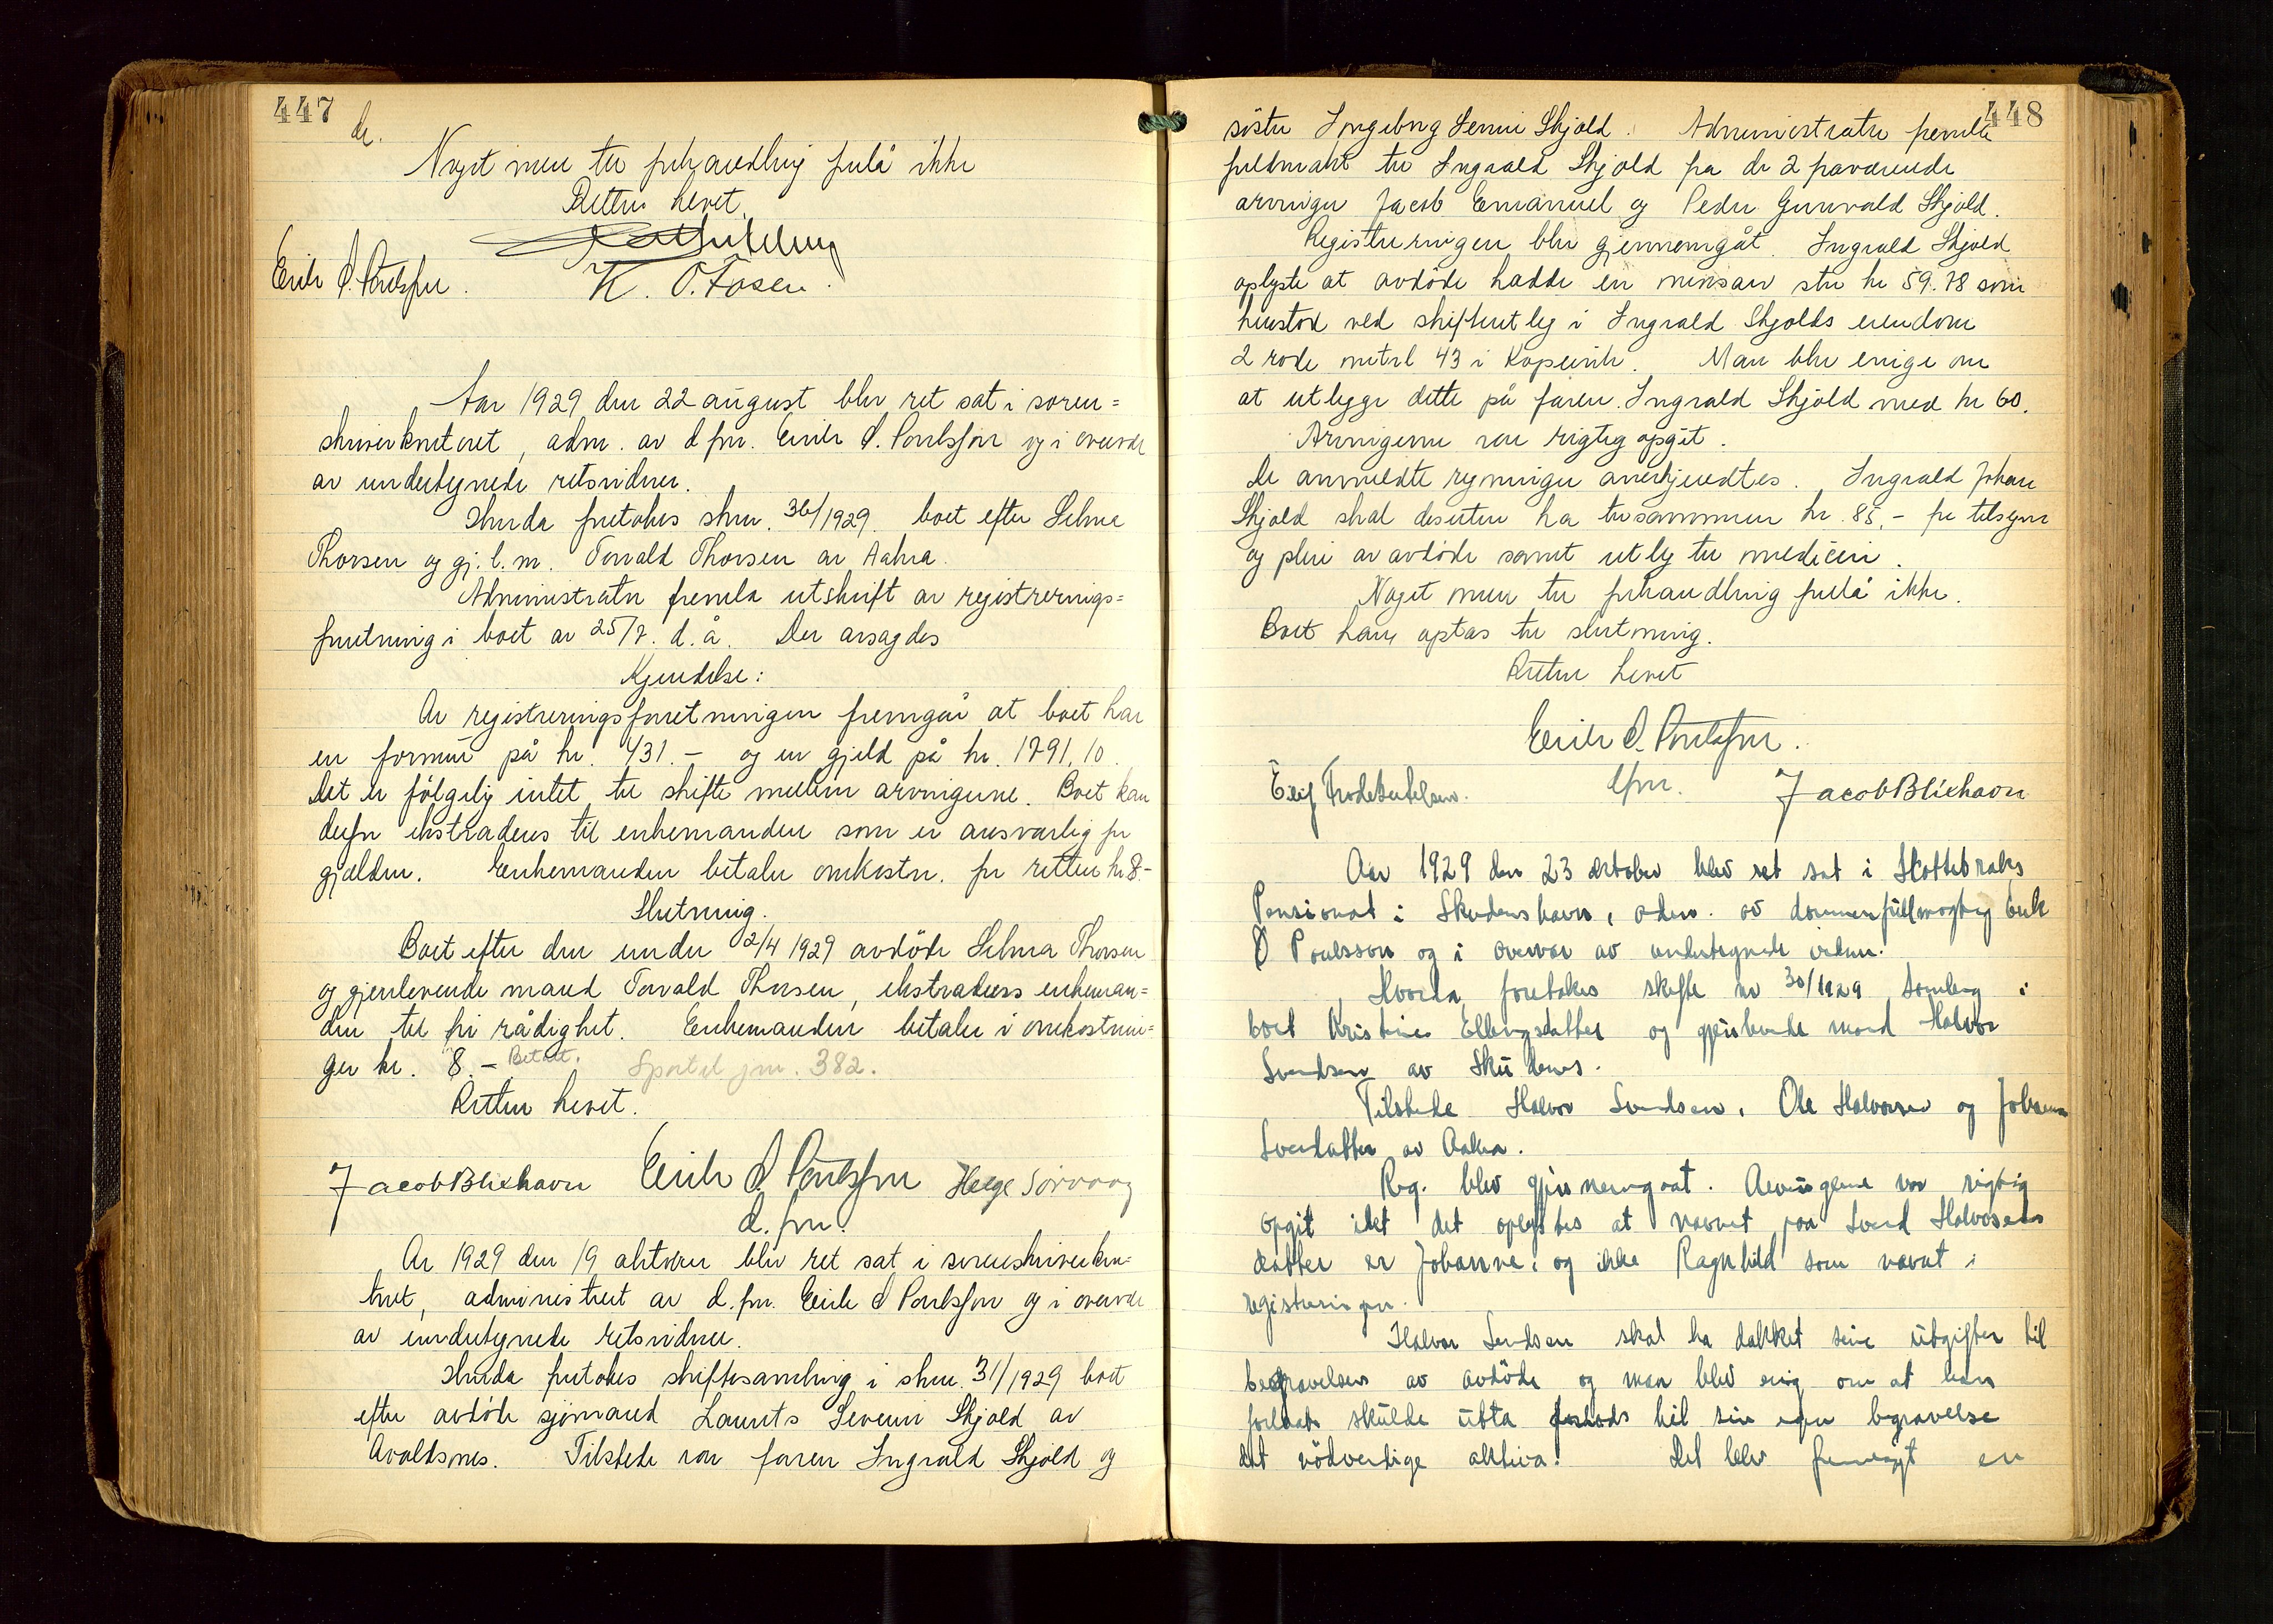 447
de.
Noget mere til forhandling forelå ikke
Retten hevet.
K. O. Fosen.
Erik Ø. Poulsson.
Aar 1929 den 22 august blev ret sat i soren=
skriverkontoret, adm. av d.fm. Erik Ø. Poulsson og i overvær
av undertegnede retsvidner.
Hvorda foretokes skm. 36/1929 boet efter Selma
Thorsen og gj. l. m. Torvald Thorsen av Aakra.
Administrator fremla utskrift av registrerings=
forretning i boet av 25/7. d. å. Der avsagdes
Kjendelse:
Av registreringsforretningen fremgår at boet har
en formue på kr. 431.- og en gjeld på kr. 1791,10.
Det er følgelig intet til skifte mellem arvingerne. Boet kan
derfor ekstraderes til enkemanden som er ansvarlig for
gjælden. Enkemanden betaler omkostn. for retten kr 8.-
Slutning.
Boet efter den under 2/4 1929 avdöde Selma Thorsen
og gjenlevende mand Torvald Thorsen, ekstraderes enkeman=
den til fri rådighet. Enkemanden betaler i omkostnin=
ger kr. 8.- Betalt. Sportel jnr. 382.
Retten hevet.
Jacob Blikhavn Erik Ø. Poulsson Helge Sörvaag
d. fm.
År 1929 den 19 oktober blev ret sat i sorenskriverkon=
toret, administrert av d.fm. Erik Ø Poulsson og i overvær
av undertegnede retsvidner.
Hvorda foretokes skiftesamling i skm. 31/1929 boet
efter avdöde sjömand Laurits Severin Skjold av
Avaldsnes. Tilstede var faren Ingvald Skjold og
448
söster Ingeborg Serine Skjold. Administrator fremla
fuldmakt til Ingvald Skjold fra de 2 fraværende
arvinger Jacob Emanuel og Peder Gunvald Skjold.
Registreringen blev gjennemgåt. Ingvald Skjold
oplyste at avdöde hadde en morsarv stor kr 59.78 som
henstod ved skifteutleg i Ingvald Skjolds eiendom
2 rode matrl 43 i Kopervik. Man blev enige om
at utlegge dette på faren Ingvald Skjold med kr 60.
Arvingerne var rigtig opgit.
De anmeldte regninger anerkjendtes. Ingvald Johan
Skjold skal desuten ha tilsammen kr. 85,- for tilsyn
og pleie av avdöde samt utleg til medicin.
Noget mere til forhandling forelå ikke.
Boet kan optas til slutning.
Retten hevet
Erik Ø. Poulsson.
dfm.
Eilif Frode Bertelsen. Jacob Blikhavn
Aar 1929 den 23 oktober blev ret sat i
Pensionat i Skudeneshavn, adm. av dommerfuldmægtig Erik
Ø Poulsson og i overvær av undertegnede vidner.
Hvorda foretokes skifte nr 30/1929 samling i
boet Kristine Ellingsdatter og gjenlevende mand Halvor
Svendsen av Skudenes.
Tilstede Halvor Svendsen, Ole Halvorsen og Johanne
Svendatter av Aakra.
Reg. blev gjennemgaat. Arvingerne var rigtig
opgit idet det oplystes at navnet paa Svend Halvorsens
datter er Johanne, og ikke Ragnhild som nævnt i
registreringen.
Halvor Svendsen skal ha dækket sine utgifter til
begravelsen av avdöde og man blev enig om at han
forlods skulde utta forlods til sin egen begravelse
det nödvendige aktiva. Det blev fremlagt en